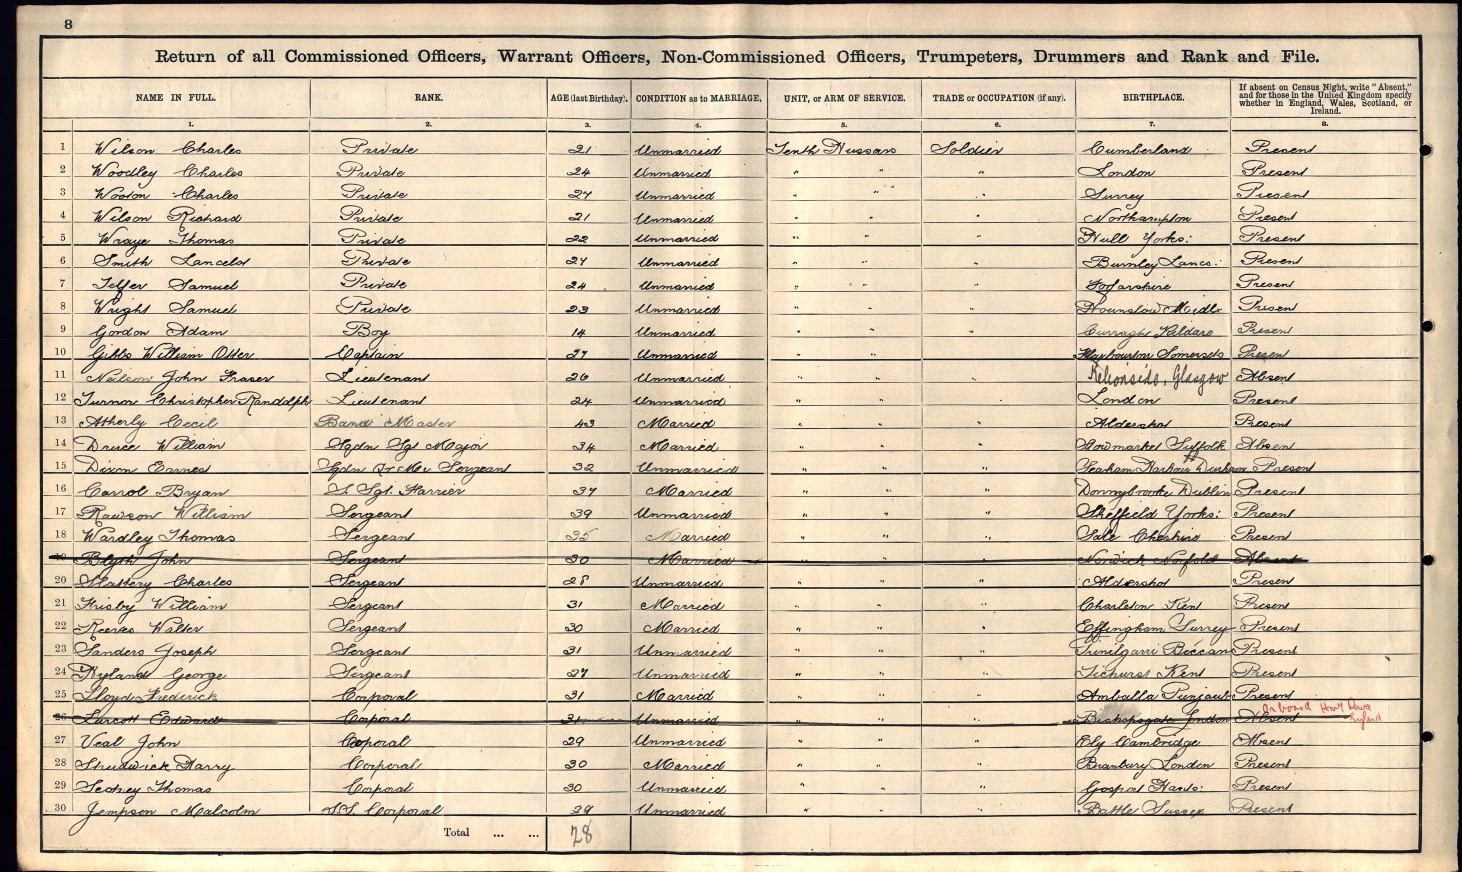 8
Return of all Commissioned Officers, Warrant Officers, Non-Commissioned Officers, Trumpeters, Drummers and Rank and File.
NAME IN FULL. RANK. AGE (last Birthday). CONDITION as to MARRIAGE. UNIT, or ARM OF SERVICE. TRADE or OCCUPATION (if any). BIRTHPLACE. If absent on Census Night, write "Absent," and for those in the United Kingdom specify whether in England, Wales, Scotland, or Ireland.
1. 2. 3. 4. 5. 6. 7. 8.
1 Wilson Charles Private 21 Unmarried Tenth Hussars Soldier Cumberland Present
2 Woodley Charles Private 24 Unmarried " " " London Present
3 Charles Private 27 Unmarried " " " Surrey Present
4 Wilson Richard Private 21 Unmarried " " " Northampton Present
5 Wraye Thomas Private 22 Unmarried " " " Hull Yorks: Present
6 Smith Lancelot Private 27 Unmarried " " " Burnley Lancs: Present
7 Telfer Samuel Private 24 Unmarried " " " Present
8 Wright Samuel Private 23 Unmarried " " " Hounslow Midlx Present
9 Gordon Adam Boy 14 Unmarried " " " Curragh Kildare Present
10 Gibbs William Otter Captain 27 Unmarried " " " Somersets Present
11 Neilson John Fraser Lieutenant 26 Unmarried " " " Kelvinside, Glasgow Absent
12 Turnor Christopher Randolph Lieutenant 24 Unmarried " " " London Present
13 Atherly Cecil Band Master 43 Married " " " Aldershot Present
14 Druce William Sqdn Sgt Major 34 Married " " " Stowmarket Suffolk Absent
15 Dixon Earnest Sqdn Qr Mr Sergeant 32 Unmarried " " " Seaham Harbour Durham Present
16 Carrol Bryan S. Sgt. Farrier 37 Married " " " Donnybrooke Dublin Present
17 Rawson William Sergeant 39 Unmarried " " " Sheffield Yorks: Present
18 Wardley Thomas Sergeant 35 Married " " " Sale Cheshire Present
19 Blyth John Sergeant 30 Married " " " Norwich Norfolk Absent
20 Slattery Charles Sergeant 28 Unmarried " " " Aldershot Present
21 Frisby William Sergeant 31 Married " " " Charlton Kent Present
22 Reeves Walter Sergeant 30 Married " " " Effingham Surrey Present
23 Sanders Joseph Sergeant 31 Unmarried " " " Present
24 Hyland George Sergeant 27 Unmarried " " " Tichurst Kent Present
25 Lloyd Frederick Corporal 31 Married " " " Amballa Punjaub Present
On board
26 Edward Corporal 31 Unmarried " " " Bishopsgate London Absent England
27 Veal John Corporal 29 Unmarried " " " Ely Cambridge Absent
28 Strudwick Harry Corporal 30 Married " " " Branbury London Present
29 Thomas Corporal 30 Unmarried " " " Gosport Hants: Present
30 Jempson Malcolm S.S. Corporal 29 Unmarried " " " Battle Sussex Present
Total ... ... 28